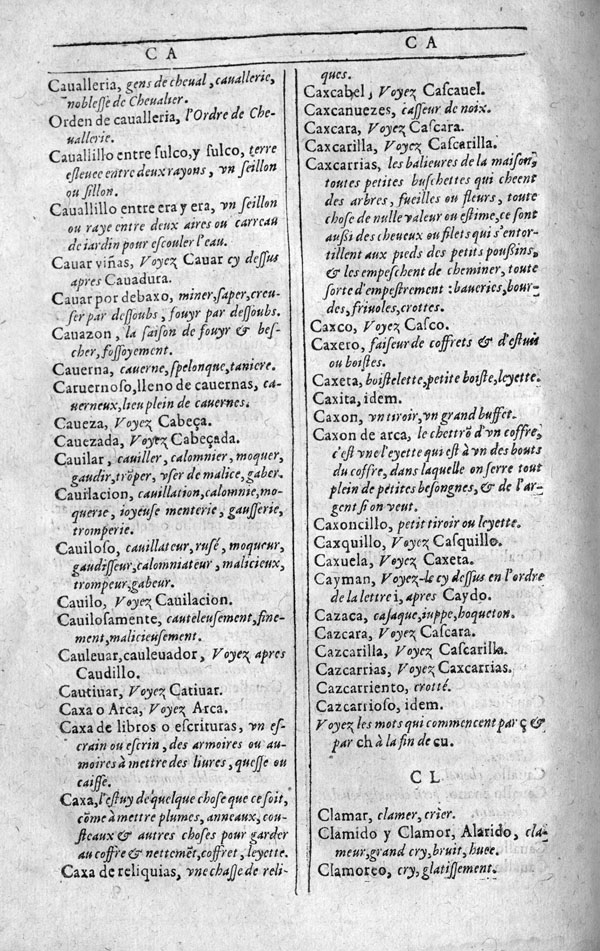 CA
CA
Caualleria, gens de cheual, cauallerie,
noblesse de Cheualier.
Orden de caualleria, l'Ordre de Che-
uallerie.
Cauallillo entre sulco, y sulco, terre
esleuee entre deux rayons, vn seillon
ou sillon.
Cauallillo entre era y era, vn seillon
ou raye entre deux aires ou carreau
de iardin pour escouler l'eau.
Cauar viñas, Voyez Cauar cy dessus
apres Cauadura.
Cauar por debaxo, miner, saper, creu-
ser par dessoubs, fouyr par dessoubs.
Cauazon, la saison de fouyr & bes-
cher, fossoyement.
Cauerna, cauerne, spelonque, taniere.
Caruernoso, lleno de cauernas, ca-
uerneux, lieu plein de cauernes.
Caueza, Voyez Cabeça.
Cauezada, Voyez Cabeçada.
Cauilar, cauiller, calomnier, moquer,
gaudir, trõper, vser de malice, gaber.
Cauilacion, cauillation, calomnie, mo-
querie, ioyeuse menterie, gausserie,
tromperie.
Cauiloso, cauillateur, rusé, moqueur,
gaudisseur, calomniateur, malicieux,
trompeur, gabeur.
Cauilo, Voyez Cauilacion.
Cauilosamente, cauteleusement, fine-
ment, malicieusement.
Cauleuar, cauleuador, Voyez apres
Caudillo.
Cautiuar, Voyez Catiuar.
Caxa o Arca, Voyez Arca.
Caxa de libros o escrituras, vn es-
crain ou escrin, des armoires ou au-
moires à mettre des liures, quesse ou
caisse.
Caxa, l'estuy de quelque chose que ce soit,
cõme à mettre plumes, anneaux, cou-
steaux & autres choses pour garder
au coffre & nettemẽt, coffret, leyette.
Caxa de reliquias, vne chasse de reli-
ques.
Caxcabel, Voyez Cascauel.
Caxcanuezes, casseur de noix.
Caxcara, Voyez Cascara.
Caxcarilla, Voyez Cascarilla.
Caxcarrias, les balieures de la maison,
toutes petites buschettes qui cheent
des arbres, fueilles ou fleurs, toute
chose de nulle valeur ou estime, ce sont
aussi des cheueux ou filets qui s'entor-
tillent aux pieds des petits poussins,
& les empeschent de cheminer, toute
sorte d'empestrement: baueries, bour-
des, friuoles, crottes.
Caxco, Voyez Casco.
Caxero, faiseur de coffrets & d'estuis
ou boistes.
Caxeta, boistelette, petite boiste, leyette.
Caxita, idem.
Caxon, vn tiroir, vn grand buffet.
Caxon de arca, le chettrõ d'vn coffre,
c'est vne l'eyette qui est à vn des bouts
du coffre, dans laquelle on serre tout
plein de petites besongnes, & de l'ar-
gent si on veut.
Caxoncillo, petit tiroir ou leyette.
Caxquillo, Voyez Casquillo.
Caxuela, Voyez Caxeta.
Cayman, Voyez-le cy dessus en l'ordre
de la lettre i, apres Caydo.
Cazaca, casaque, iuppe, hoqueton.
Cazcara, Voyez Cascara.
Cazcarilla, Voyez Cascarilla.
Cazcarrias, Voyez Caxcarrias.
Cazcarriento, crotté.
Cazcarrioso, idem.
Voyez les mots qui commencent par ç &
par ch à la fin de çu.
CL
Clamar, clamer, crier.
Clamido y Clamor, Alarido, cla-
meur, grand cry, bruit, huee.
Clamoreo, cry, glatissement.